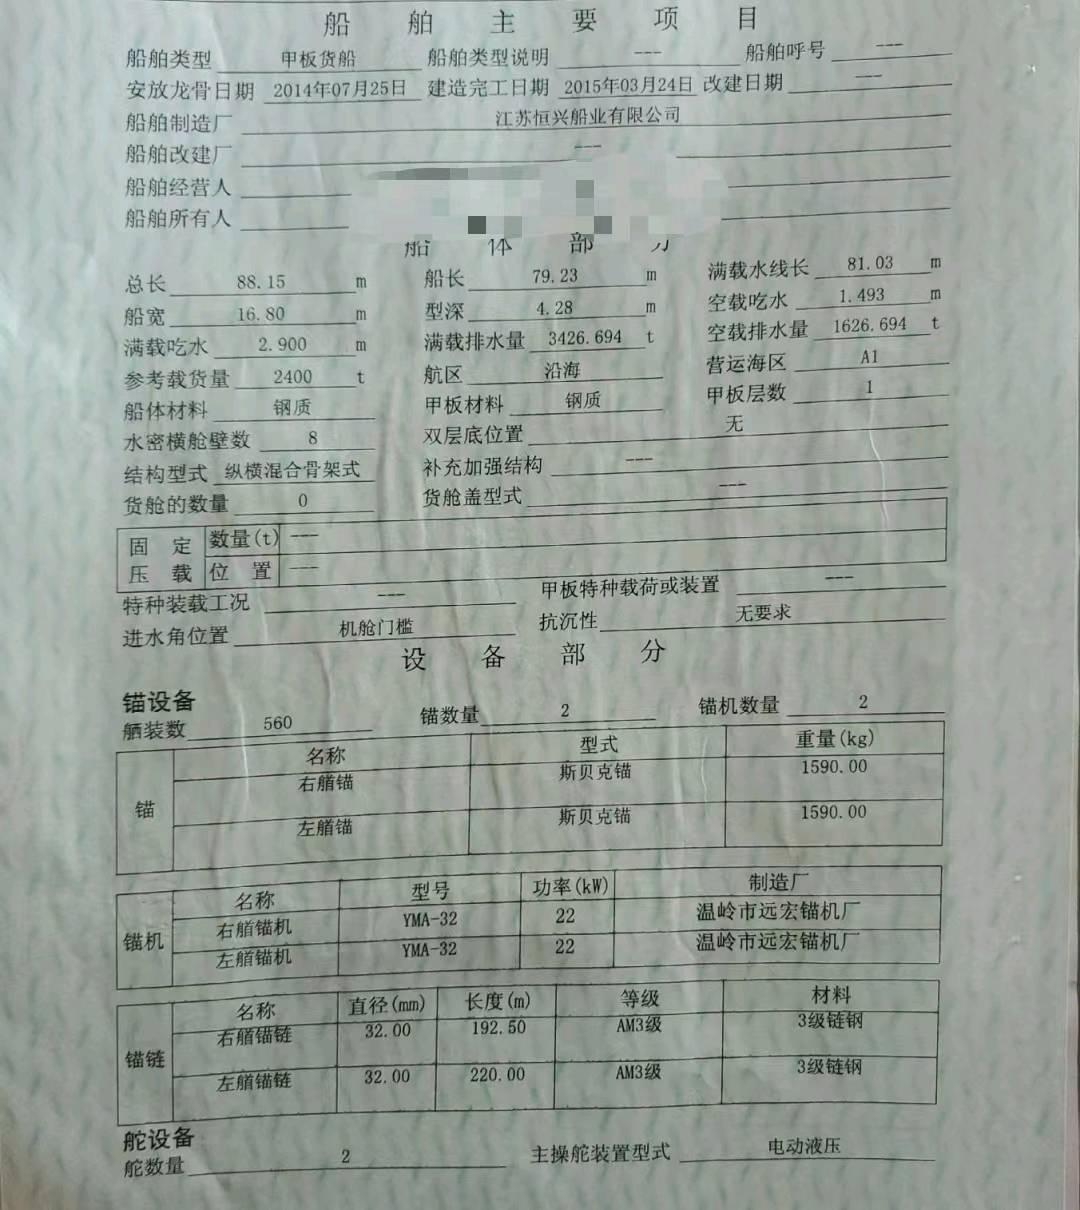 船舶主要项目
船舶类型 甲板货船 船舶类型说明 --- 船舶呼号 ---
安放龙骨日期 2014年07月25日 建造完工日期 2015年03月24日 改建日期 ---
船舶制造厂 江苏恒兴船业有限公司
船舶改建厂 ---
船舶经营人
船舶所有人
船体部分
总长 88.15 m 船长 79.23 m 满载水线长 81.03 m
船宽 16.80 m 型深 4.28 m 空载吃水 1.493 m
满载吃水 2.900 m 满载排水量 3426.694 t 空载排水量 1626.694 t
参考载货量 2400 t 航区 沿海 营运海区 A1
船体材料 钢质 甲板材料 钢质 甲板层数 1
水密横舱壁数 8 双层底位置 无
结构型式 纵横混合骨架式 补充加强结构 ---
货舱的数量 0 货舱盖型式 ---
固定压载 数量(t) ---
位置 ---
特种装载工况 --- 甲板特种载荷或装置 ---
进水角位置 机舱门槛 抗沉性 无要求
设备部分
锚设备
舾装数 560 锚数量 2 锚机数量 2
锚 名称 型式 重量(kg)
右艏锚 斯贝克锚 1590.00
左艏锚 斯贝克锚 1590.00
锚机 名称 型号 功率(kW) 制造厂
右艏锚机 YMA-32 22 温岭市远宏锚机厂
左艏锚机 YMA-32 22 温岭市远宏锚机厂
锚链 名称 直径(mm) 长度(m) 等级 材料
右艏锚链 32.00 192.50 AM3级 3级链钢
左艏锚链 32.00 220.00 AM3级 3级链钢
舵设备
舵数量 2 主操舵装置型式 电动液压